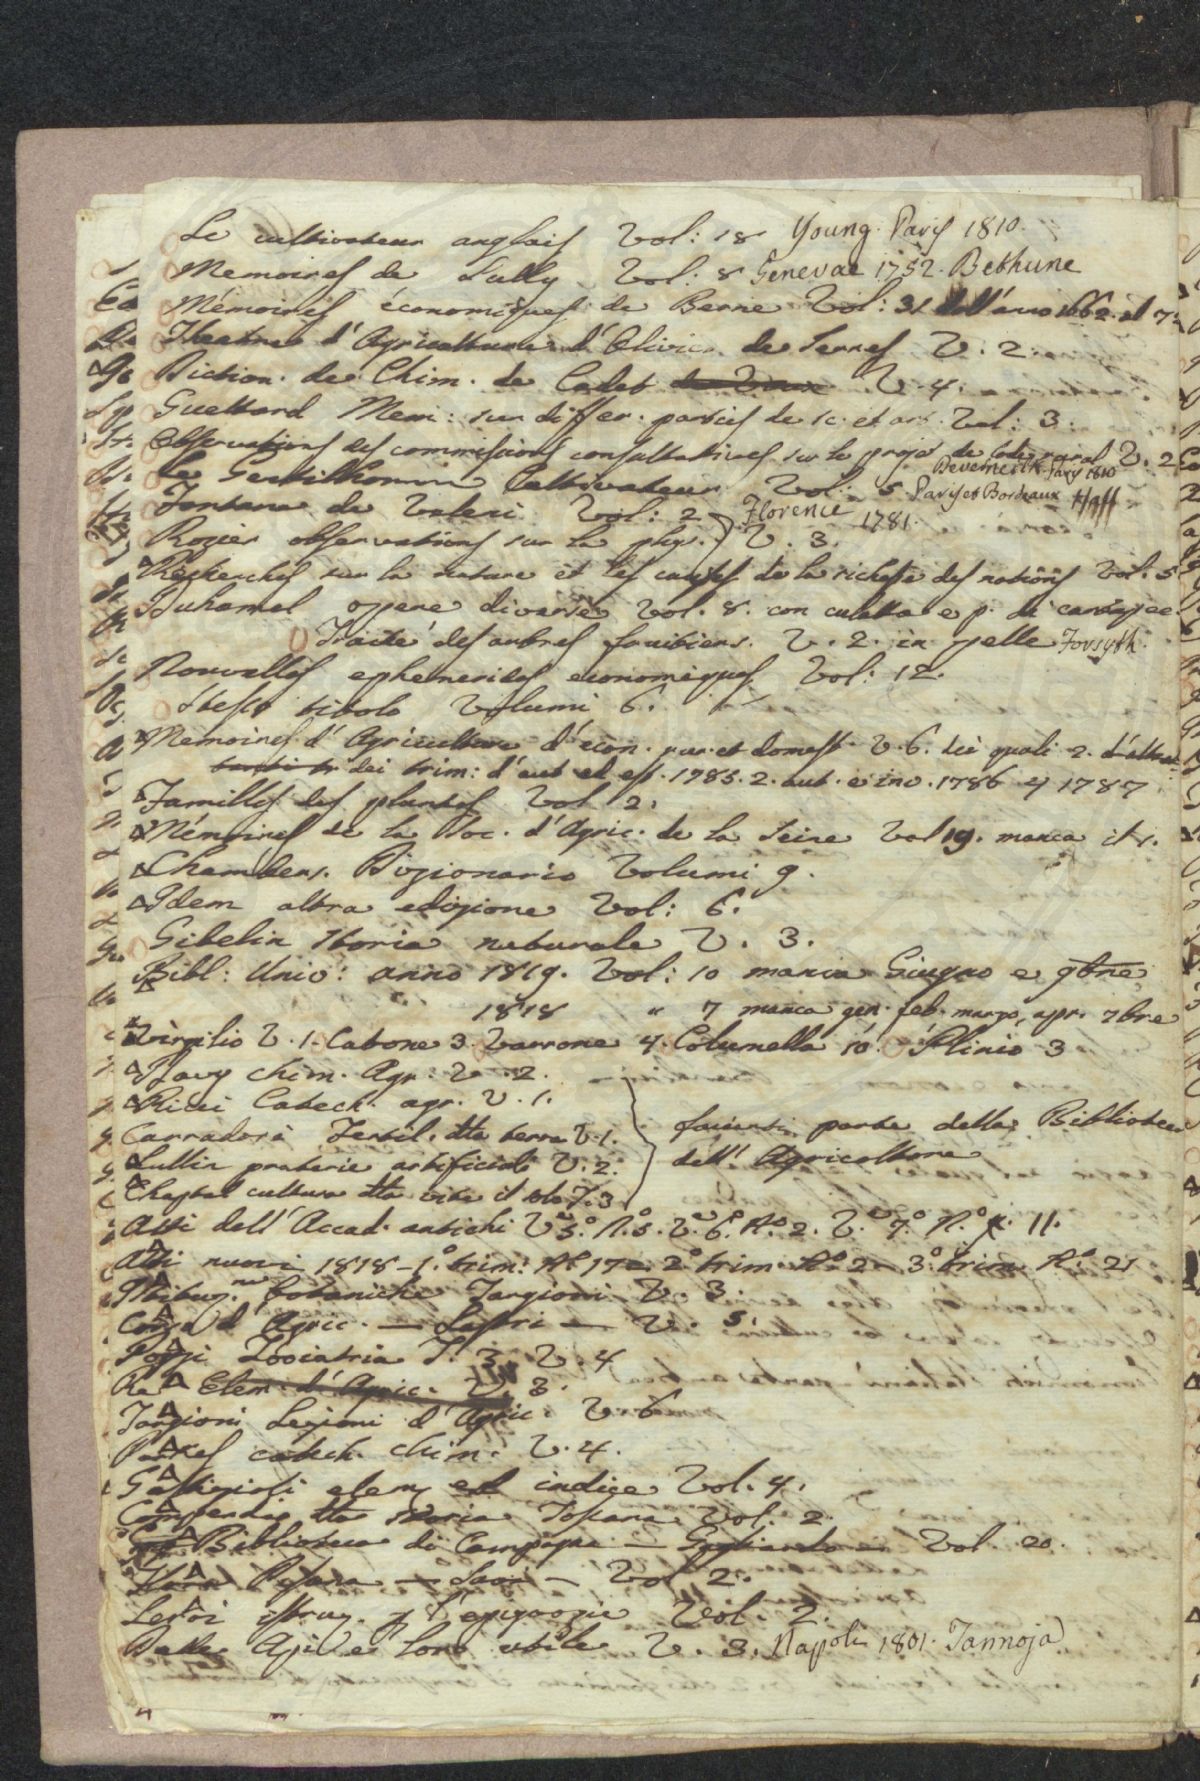 Le cultivateur anglais Vol: 18 Young. Paris 1810.
Memoires de Sully Vol: 8 Genevae 1752. Bethune
Mémoires économiques de Berne Vol: 31 dall'anno
Theatre d'Agriculture d'Olivier de Serres V. 2.
Diction. de Chim. de Cadet V. 4.
Guettard Mem: sur differ. parties de sc. et ars. Vol: 3.
Observations des commissions consultatives sur le projet de Code rural V. 2
Devemeilh Paris 1810
Le Gentilhomme Cultivateur Vol: 5. Paris et Bordeaux
Fontana de Veleni Vol: 2 Florence 1781.
Rozier observations sur la phys. V. 3.
Recherches sur la nature et les causes de la richesse des nations Vol. 5
Duhamel opere diverse Vol. 8. con culatta e p. di cartapec.
Traité des arbres fruitiers. V. 2. in pelle Forsyth.
Nouvelles ephemerides economiques Vol: 12.
Stesso titolo Volumi 6.
Memoires d'Agriculture d'écon. rur. et domest. V. 6. dei quali 2. d'
dei trim: d'aut. ed est. 1785. 2. aut. e inv. 1786 e 1787
Familles des plantes Vol 2.
Mémoires de la Soc. d'Agric. de la Seine Vol 19. manca il 1.
Chambers. Dizionario Volumi 9.
Idem altra edizione Vol: 6.
Gibelin Storia naturale V. 3.
Bibl: Univ: anno 1819. Vol: 10 manca Giugno e 9bre
1818 " 7 manca gen. feb. marzo, apr. 7bre
Virgilio V. 1. Catone 3. Varrone 4. Columella 10. Plinio 3
Davy chim. Agr. V. 2.
Ricci Catech. agr. V. 1.
Carradori Fertil. della terra V. 1. facienti parte della Biblioteca
Lullin praterie artificiali V. 2. dell'Agricoltore
Chaptal cultura della vite V. 3
Atti dell'Accad. antichi V. 5.° N. 5. V. 6.° N.° 2. V. 7.° N.° 11.
Atti nuovi 1818 - 1.° trim: N.° 17 - 2.° trim N.° 2 - 3.° trim N.° 21
Istituz.ni botaniche Targioni V. 3.
Corso d'Agric. — Lastri — V. 5.
Pozzi Zooiatria T. 3. V. 4
Re Elem. d'Agric. V. 3.
Targioni Lezioni d'Agric. V. 6
Parkes catech. chim. V. 4.
elem. indice Vol. 4.
Compendio della Storia Toscana Vol. 2
Biblioteca di Campagna — Gagliardo — Vol 20.
Pisana — — Vol 2.
Leroi istruz. p. l'epizoozie Vol. 2.
Delle Api e loro utile V. 3. Napoli 1801. Tannoja